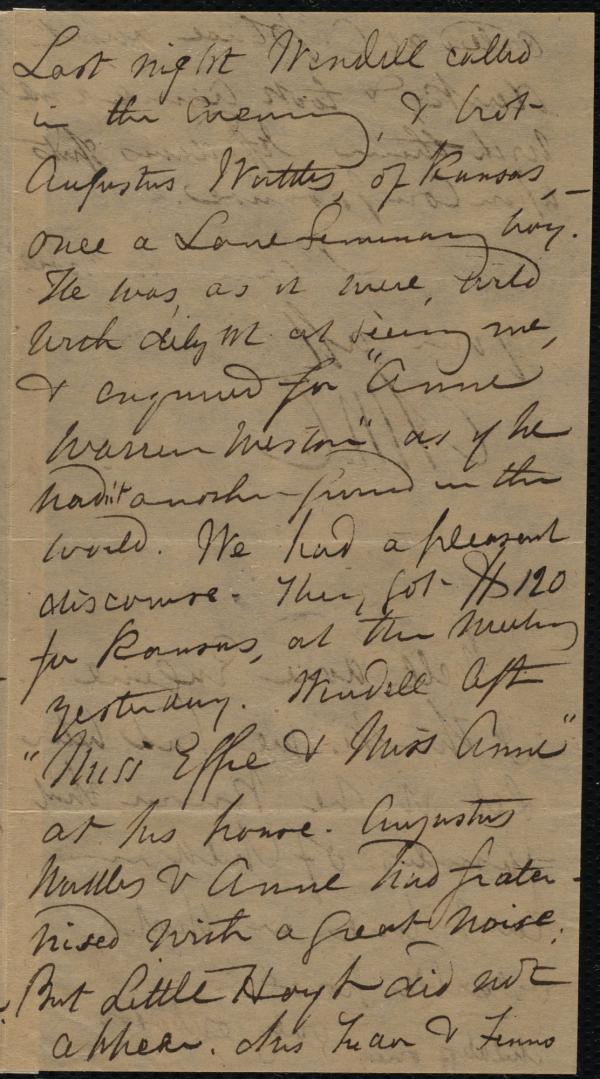 Last night Wendell called
in the evening, & brot
Augustus Wattles, of Kansas, –
once a Lane Seminary boy.
He was, as it were, wild
with delight at seeing me,
& enquired for "Anne
Warren Weston" as if he
hadn't another friend in the
world. We had a pleasant
discourse. They got $120
for Kansas, at the meeting
yesterday. Wendell left
"Miss Effie & Miss Anne"
at his house. Augustus
Wattles & Anne had frater-
nised with a great noise.
But Little Hoyt did not
appear. Mrs &